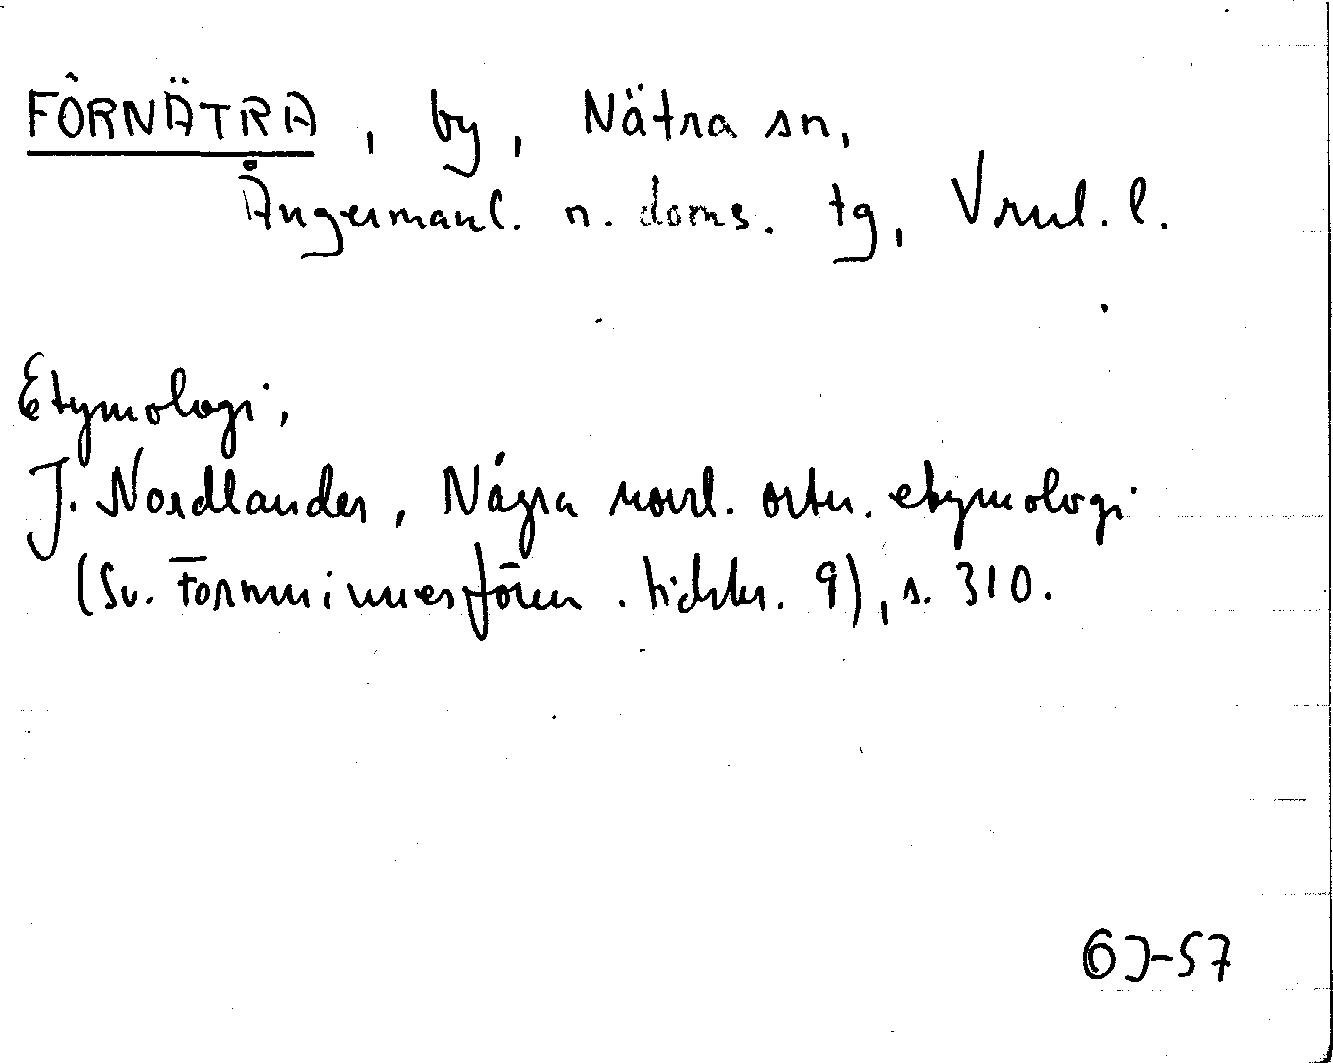 FÖRNÄTRA, by, Nätra sn,
Ångermanl. n. doms. tg, Vrnl. l.
Etymologi,
J. Nordlander, Några norrl. ortn. etymologi
(Sv. Fornminnesfören. tidskr. 9), s. 310.
-57